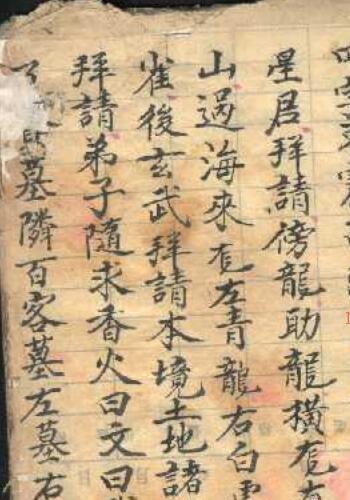 星居拜請傍龍助龍橫
山過海來 左青龍右白
雀後玄武拜請本境土地諸
拜請弟子隨求香火曰文曰
墓隣百客墓左墓右